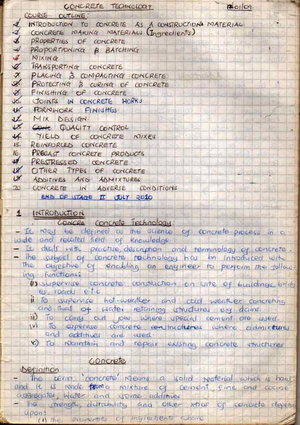 CONCRETE TECHNOLOGY
COURSE OUTLINE
1. INTRODUCTION TO CONCRETE AS A CONSTRUCTION MATERIAL
2. CONCRETE MAKING MATERIALS (Ingredients)
3. PROPERTIES OF CONCRETE
4. PROPORTIONING & BATCHING
5. MIXING
6. TRANSPORTING CONCRETE
7. PLACING & COMPACTING CONCRETE
8. PROTECTING & CURING OF CONCRETE
9. FINISHING OF CONCRETE
10. JOINTS IN CONCRETE WORKS
11. FORMWORK FINISHES
12. MIX DESIGN
13. QUALITY CONTROL
14. YIELD OF CONCRETE MIXES
15. REINFORCED CONCRETE
16. PRECAST CONCRETE PRODUCTS
17. PRESTRESSED CONCRETE
18. OTHER TYPES OF CONCRETE
19. ADDITIVES AND ADMIXTURES
20. CONCRETE IN ADVERSE CONDITIONS
END OF STAGE II JULY 2010
1 INTRODUCTION
Concrete Technology
- It may be defined as the science of concrete process in a
wide and related field of knowledge
- It dealt with practice, description and terminology of concrete
- The subject of concrete technology has been introduced with
the objective of enabling an engineer to perform the follow
ing functions
(i) supervise concrete construction on site of buildings, brid
es, roads etc
ii) To supervise hot weather and cold weather concreting
and that of water retaining structures eg dams
iii) To carry out job where special cement are used.
iv) To supervise concrete constructures where admixtures
and additives are used
v) To maintain and repair existing concrete structures
CONCRETE
Definition
- The term 'concrete' means a solid material which is hard
and it is made from mixture of cement, fine and coarse
aggregates, water and some additives
- The strength, durability and other of concrete depend
upon
(i) The properties of ingredients